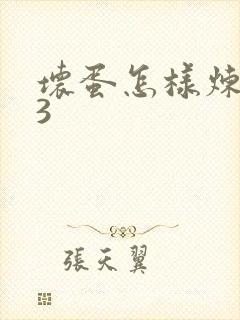 壞蛋怎樣煉
3
張天翼